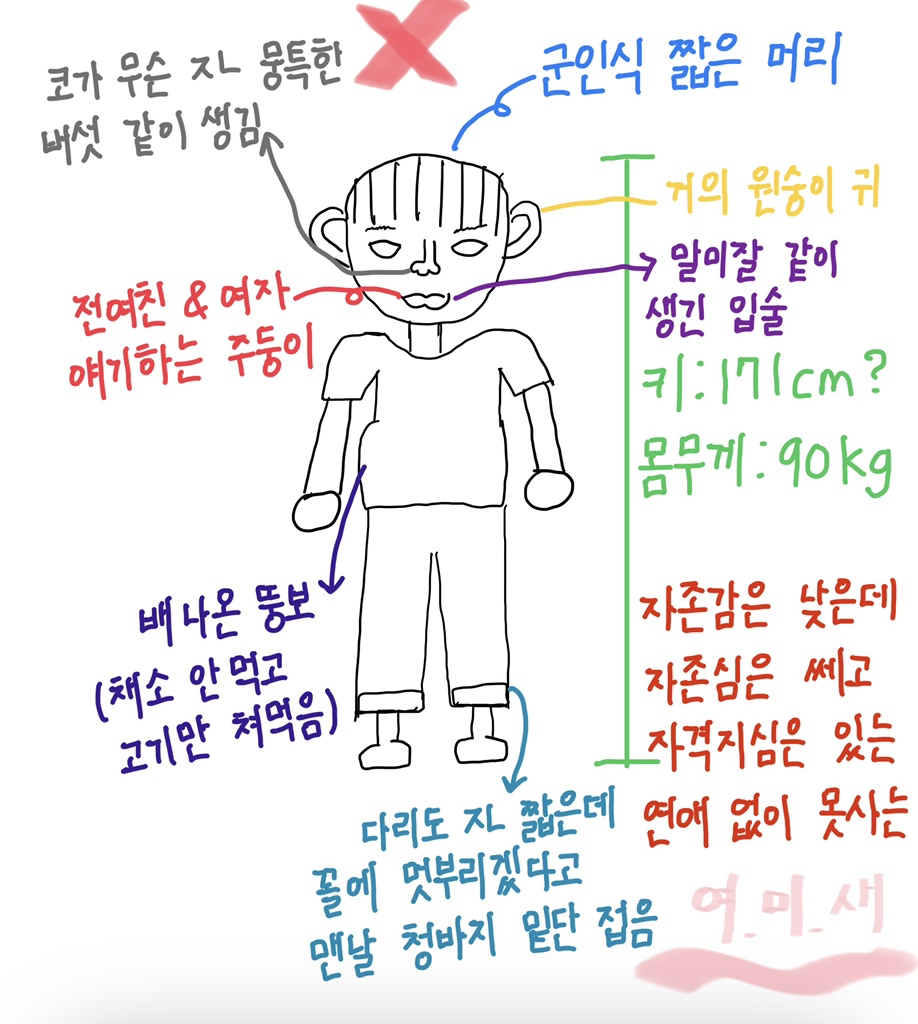 코가 무슨 ㅈㄴ 뭉특한
버섯 같이 생김
군인식 짧은 머리
거의 원숭이 귀
말미잘 같이
생긴 입술
전여친 & 여자
얘기하는 주둥이
키:171cm?
몸무게:90kg
배 나온 뚱보
(채소 안 먹고
고기만 쳐먹음)
자존감은 낮은데
자존심은 쎄고
자격지심은 있는
연애 없이 못사는
여.미.새
다리도 ㅈㄴ 짧은데
꼴에 멋부리겠다고
맨날 청바지 밑단 접음